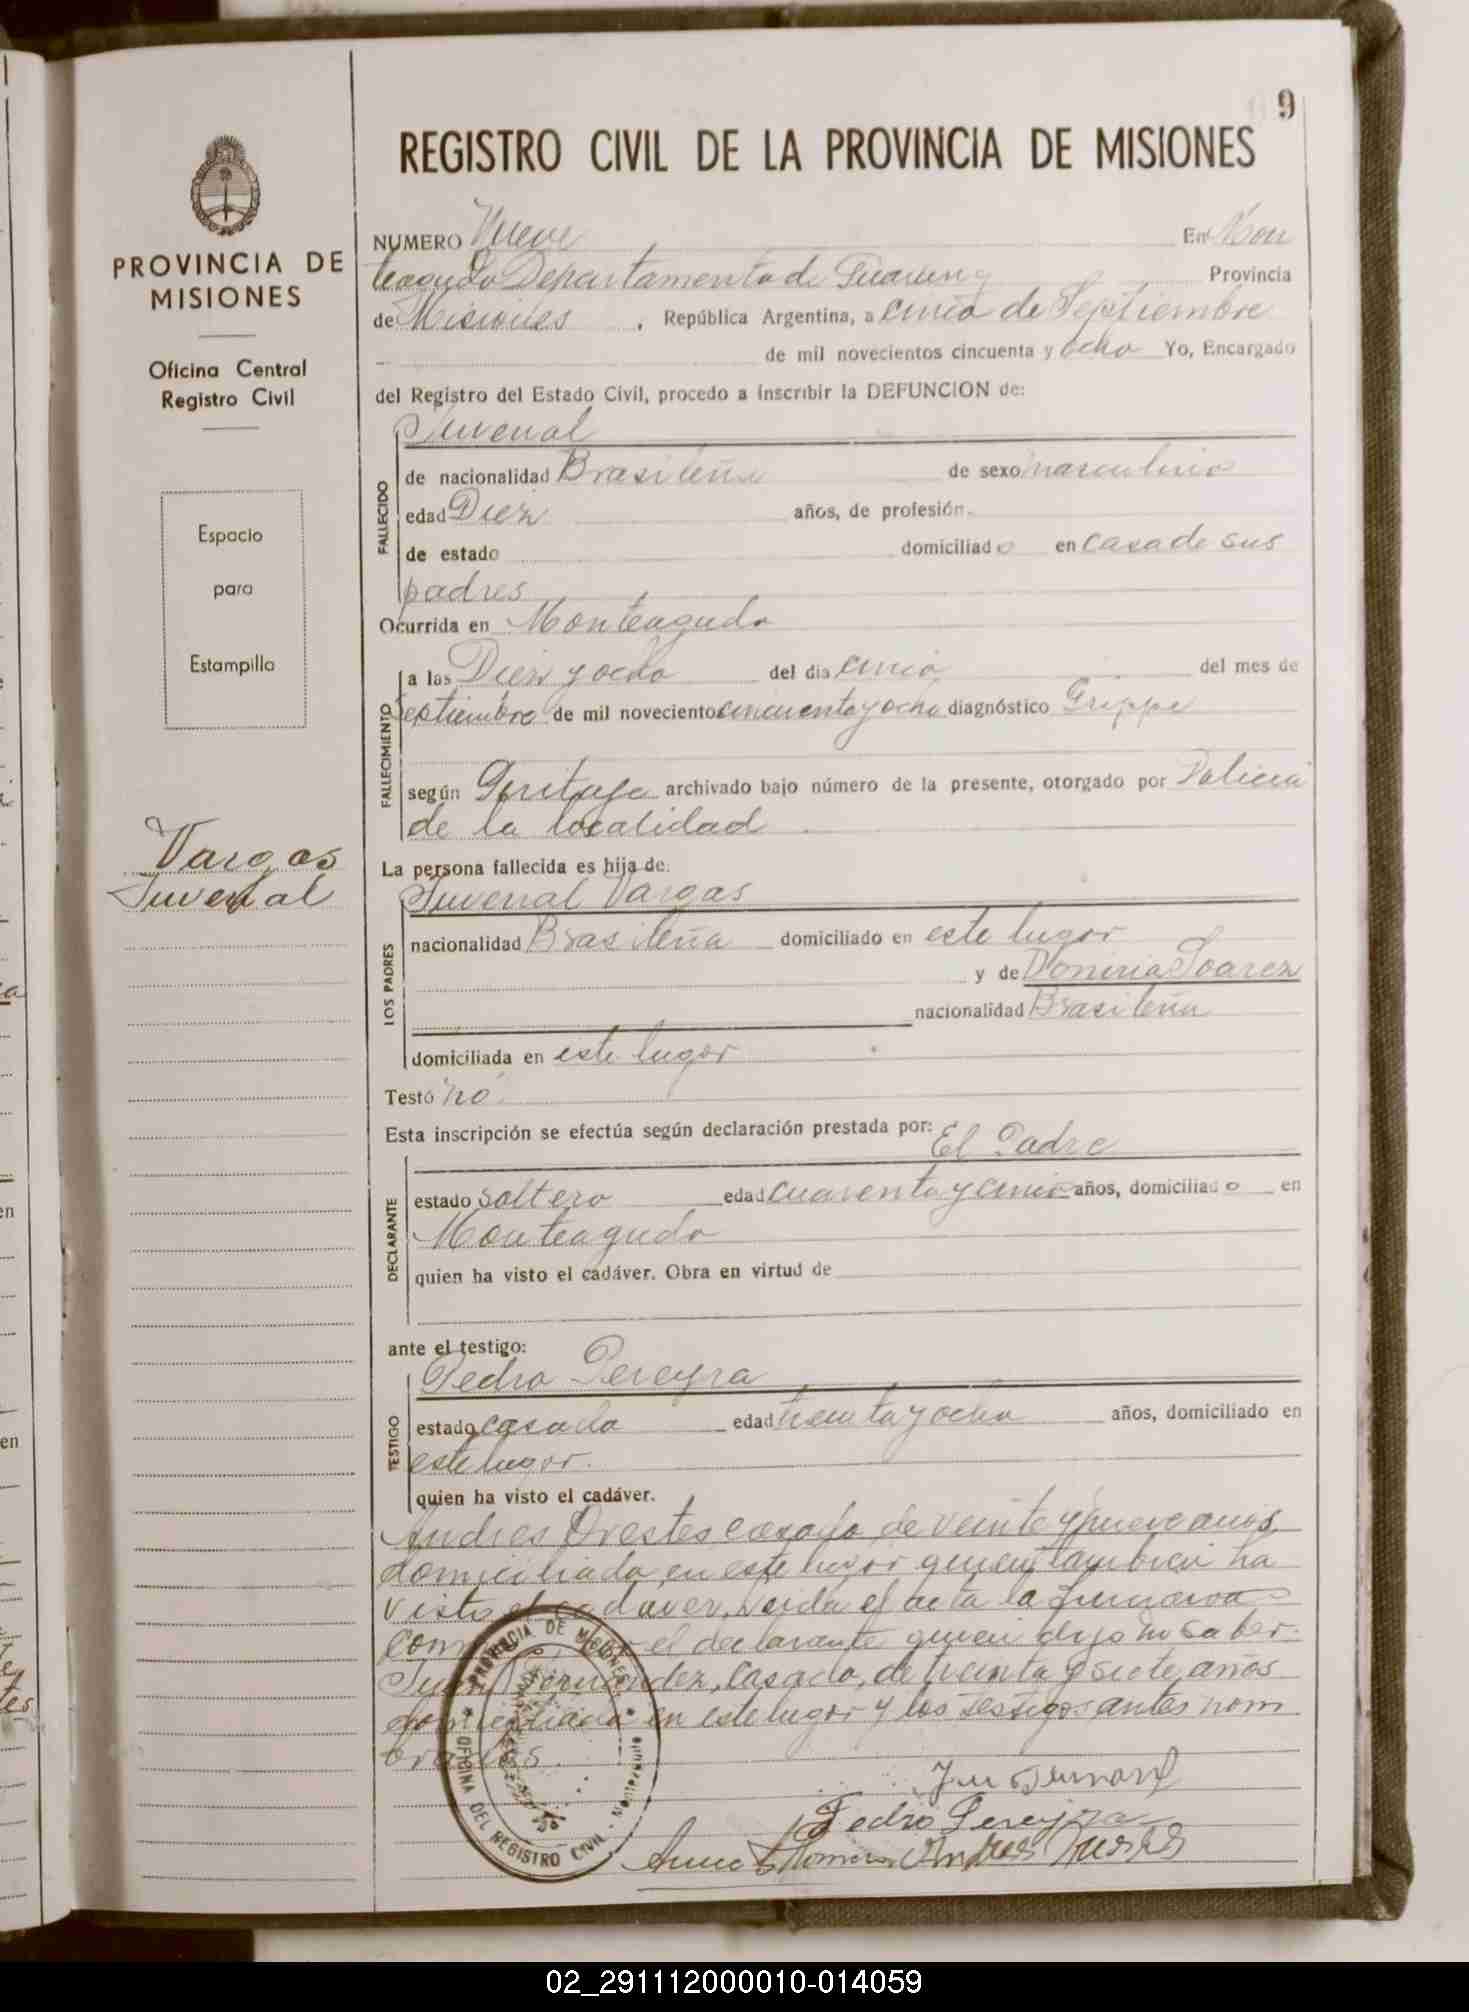 9
REGISTRO CIVIL DE LA PROVINCIA DE MISIONES
PROVINCIA DE
MISIONES
Oficina Central
Registro Civil
Espacio
para
Estampilla
Vargas
Juvenal
NUMERO Nueve En Mon
teagudo Departamento de Guarany Provincia
de Misiones , República Argentina, a cinco de Septiembre
de mil novecientos cincuenta y ocho Yo, Encargado
del Registro del Estado Civil, procedo a inscribir la DEFUNCION de:
Juvenal
FALLECIDO
de nacionalidad Brasileña de sexo masculino
edad Diez años, de profesión
de estado domiciliado en casa de sus
padres
Ocurrida en Monteagudo
FALLECIMIENTO
a las Diez y ocho del día cinco del mes de
Septiembre de mil novecientos cincuenta y ocho diagnóstico Grippe
según archivado bajo número de la presente, otorgado por Policia
de la localidad
La persona fallecida es hija de:
LOS PADRES
Juvenal Vargas
nacionalidad Brasileña domiciliado en este lugar
y de Soarez
nacionalidad Brasileña
domiciliada en este lugar
Testó no
Esta inscripción se efectúa según declaración prestada por: El Padre
DECLARANTE
estado soltero edad cuarenta y cinco años, domiciliado en
Monteagudo
quien ha visto el cadáver. Obra en virtud de
ante el testigo:
TESTIGO
Pedro Pereyra
estado casado edad treinta y ocho años, domiciliado en
este lugar.
quien ha visto el cadáver.
Andres Orestes casado, de veinte y nueve anos,
domiciliado en este lugar quien tambien ha
visto el cadaver. Leida el acta la firman
el declarante quien dijo no saber
Juan Fernandez, casado, de treinta y siete años
domiciliado en este lugar y los testigos antes nom
brados.
PROVINCIA DE MISIONES
OFICINA DEL REGISTRO CIVIL - Monteagudo
Pedro Pereyra
02_291112000010-014059